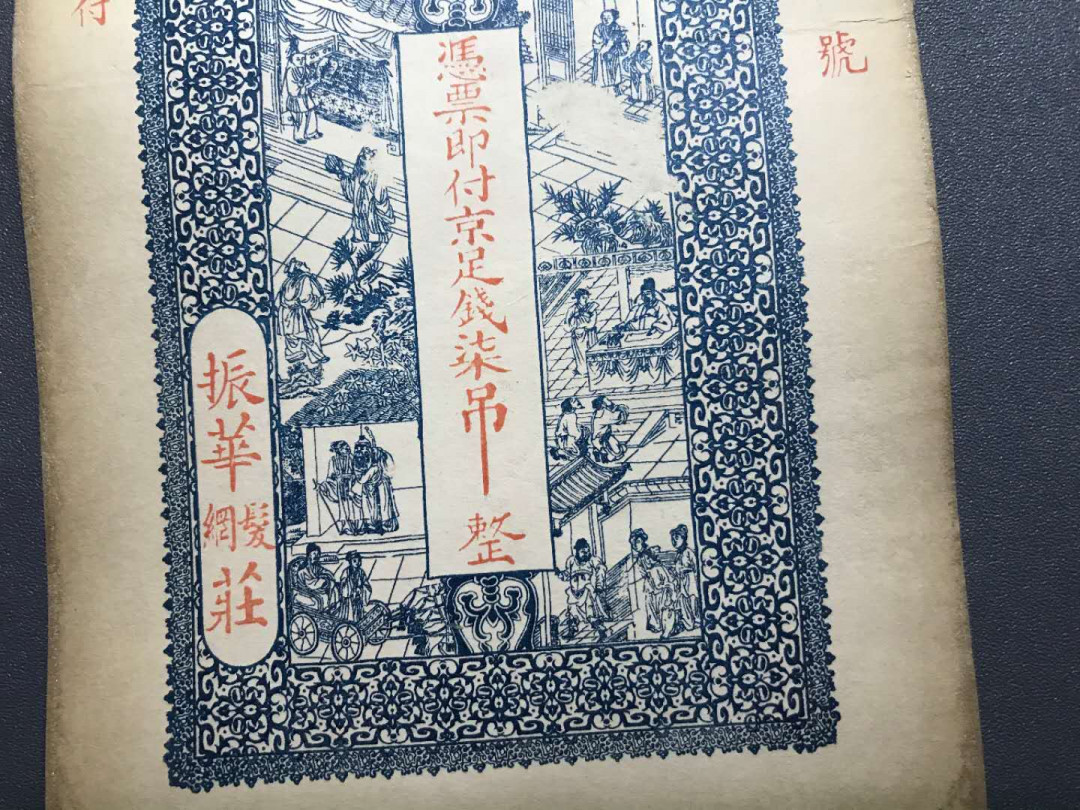 號
憑票即付京足錢柒吊整
振華髮網莊
付